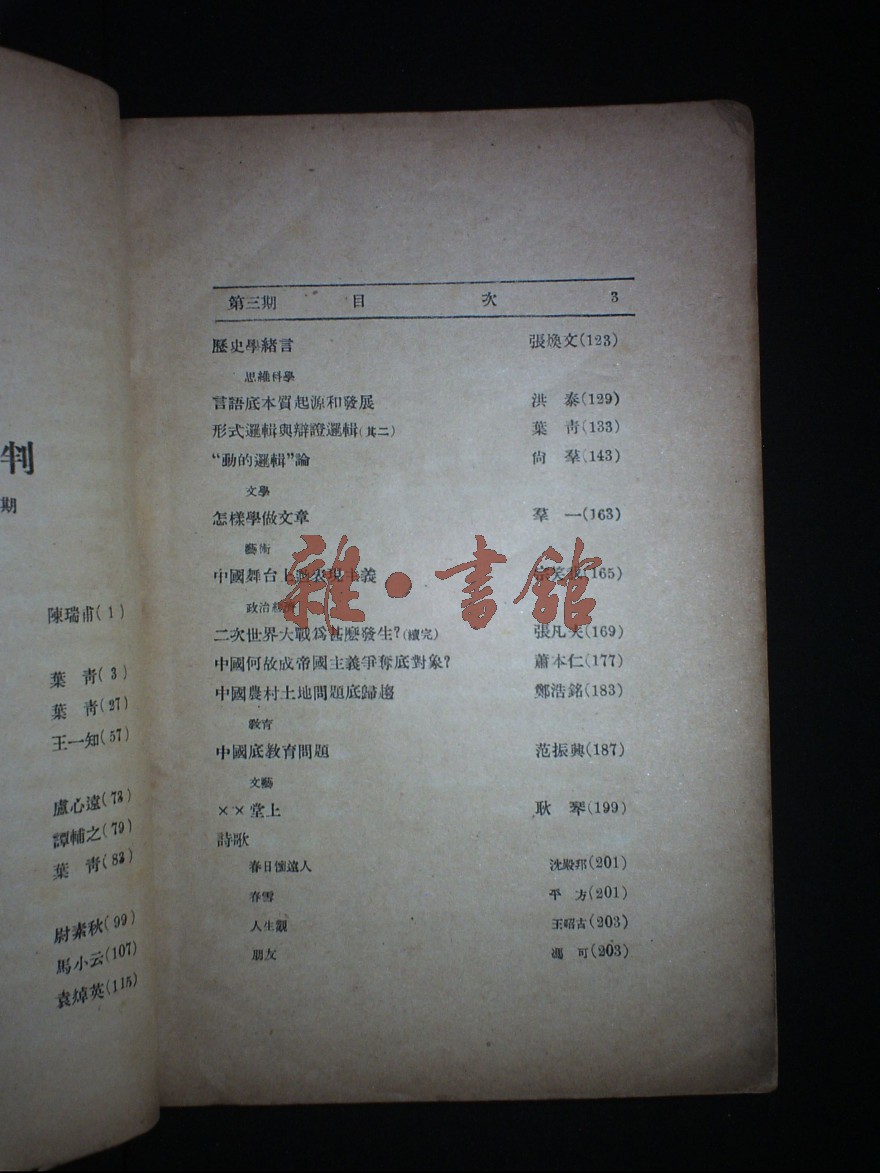 判
期
陳瑞甫(1)
葉 靑(3)
葉 靑(27)
王一知(57)
盧心遠(73)
譚輔之(79)
葉 靑(83)
尉素秋(99)
馬小云(107)
袁焯英(115)
第三期 目 次 3
歷史學緒言 張煥文(123)
思維科學
言語底本質起源和發展 洪 泰(129)
形式邏輯與辯證邏輯(其二) 葉 靑(133)
“動的邏輯”論 尙 羣(143)
文學
怎樣學做文章 羣 一(163)
藝術
中國舞台上底表現主義 宗(165)
政治經濟
二次世界大戰爲甚麼發生?(續完) 張凡夫(169)
中國何故成帝國主義爭奪底對象? 蕭本仁(177)
中國農村土地問題底歸趨 鄭浩銘(183)
敎育
中國底敎育問題 范振興(187)
文藝
××堂上 耿 琴(199)
詩歌
春日懷遠人 沈殿邦(201)
春雪 平 方(201)
人生觀 王昭古(203)
朋友 馮 可(203)
雜·書館